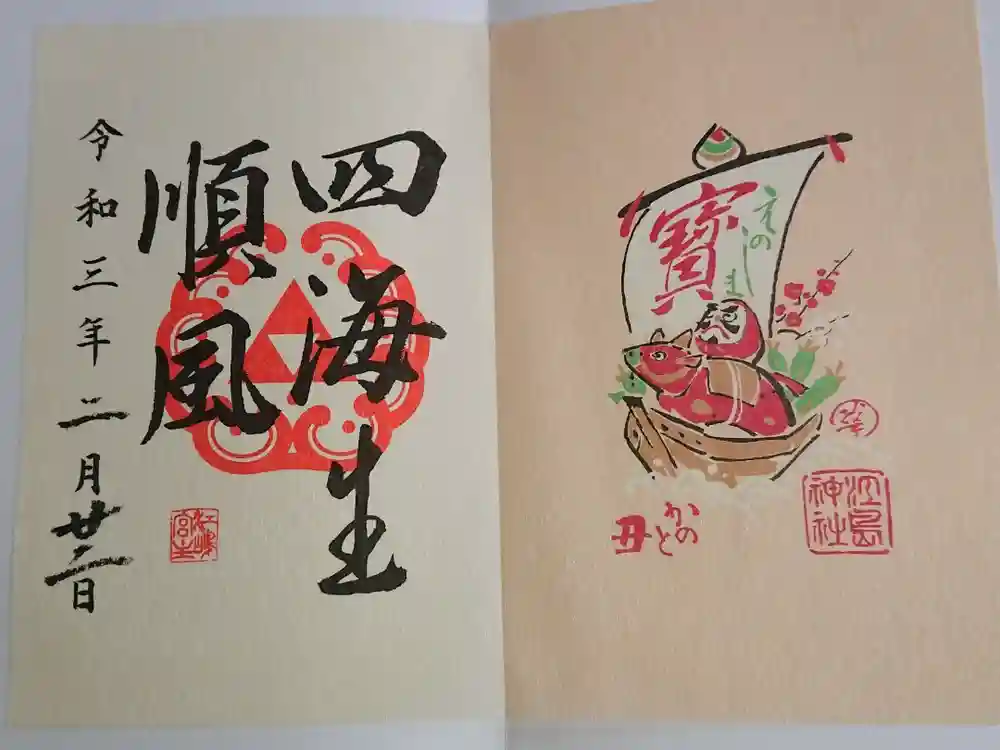 四海生
順風
令和三年二月廿二日
江嶋
宮主
寳
えのしま
かのと
丑
江島
神社